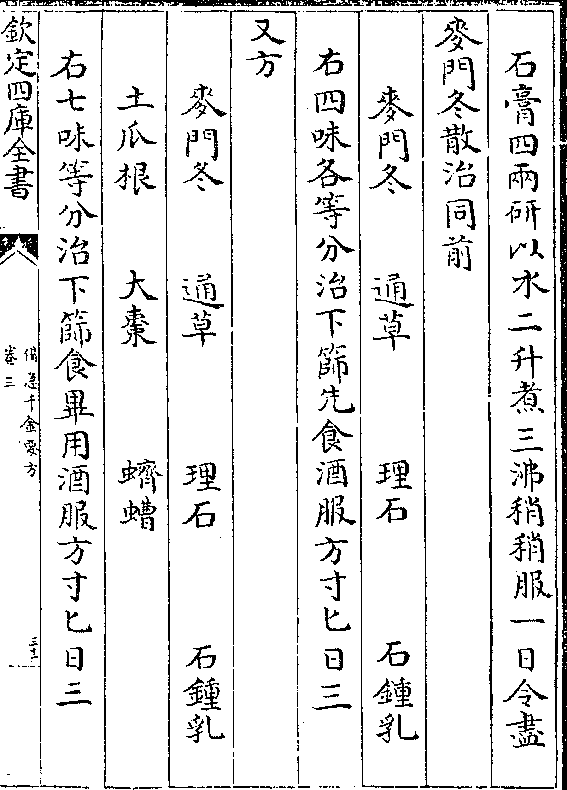 石膏四兩研以水二升煮三沸稍稍服一日令盡
麥門冬散治同前
麥門冬　通草　理石　石鍾乳
右四味各等分治下篩先食酒服方寸匕日三
又方
麥門冬　通草　理石　石鍾乳
土瓜根　大棗　蠐螬
右七味等分治下篩食畢用酒服方寸匕日三
欽定四庫全書
備急千金要方
卷三